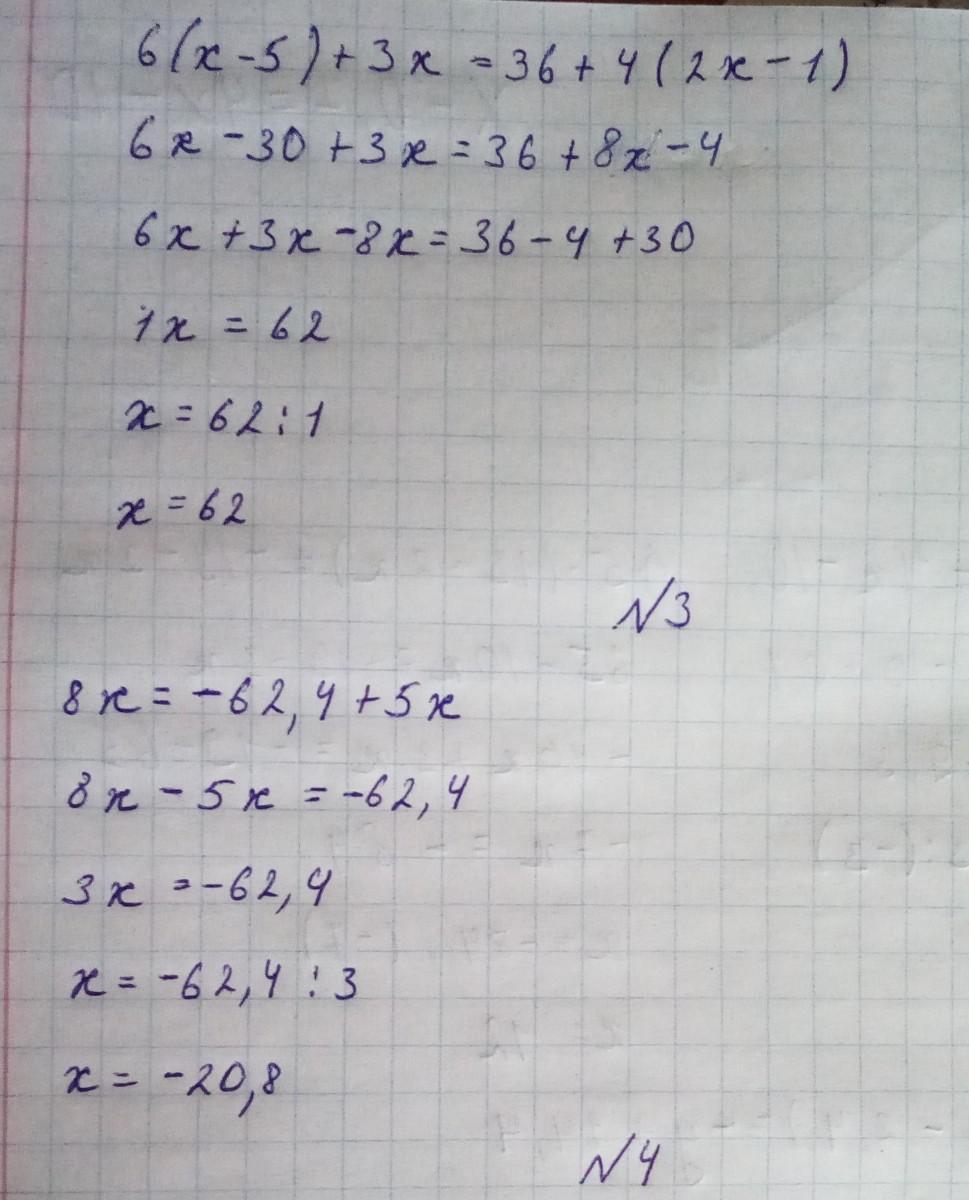 6(x-5)+3x=36+4(2x-1)
6x-30+3x=36+8x-4
6x+3x-8x=36-4+30
1x=62
x=62:1
x=62
№3
8x=-62,4+5x
8x-5x=-62,4
3x=-62,4
x=-62,4:3
x=-20,8
№4